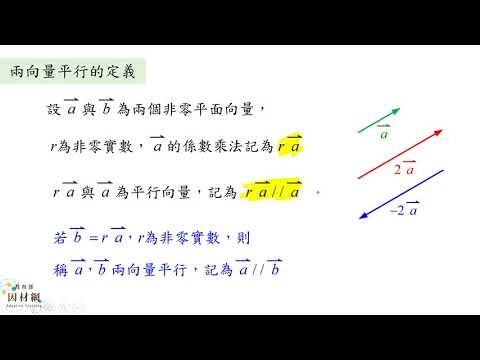 兩向量平行的定義
設 a⃗ 與 b⃗ 為兩個非零平面向量，
r為非零實數，a⃗ 的係數乘法記為 r a⃗
r a⃗ 與 a⃗ 為平行向量，記為 r a⃗ // a⃗
若 b⃗ = r a⃗，r為非零實數，則
稱 a⃗，b⃗ 兩向量平行，記為 a⃗ // b⃗
a⃗
2 a⃗
−2 a⃗
教育部
因材網
Adaptive Learning